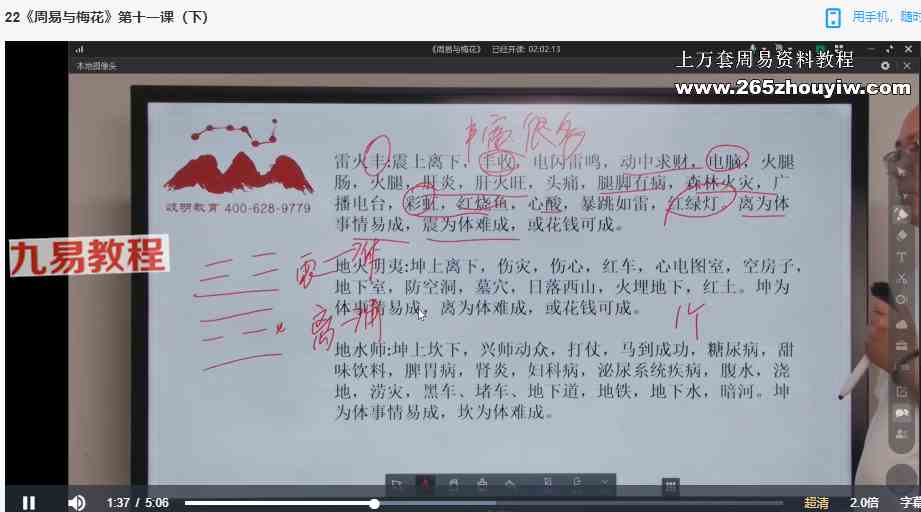 22《周易与梅花》第十一课（下）
用手机，随时
《周易与梅花》 已经开课: 02:02:13
本地摄像头
上万套周易资料教程
www.265zhouyiw.com
丰富 很多
雷火丰:震上离下，丰收，电闪雷鸣，动中求财，电脑，火腿
肠，火腿，肝炎，肝火旺，头痛，腿脚有病，森林火灾，广
播电台，彩虹，红烧鱼，心酸，暴跳如雷，红绿灯。离为体
事情易成，震为体难成，或花钱可成。
启明教育 400-628-9779
九易教程
地火明夷:坤上离下，伤灾，伤心，红车，心电图室，空房子，
地下室，防空洞，墓穴，日落西山，火埋地下，红土。坤为
体事情易成，离为体难成，或花钱可成。
地水师:坤上坎下，兴师动众，打仗，马到成功，糖尿病，甜
味饮料，脾胃病，肾炎，妇科病，泌尿系统疾病，腹水，浇
地，涝灾，黑车、堵车、地下道，地铁，地下水，暗河。坤
为体事情易成，坎为体难成。
1:37 / 5:06
超清
2.0倍
字幕